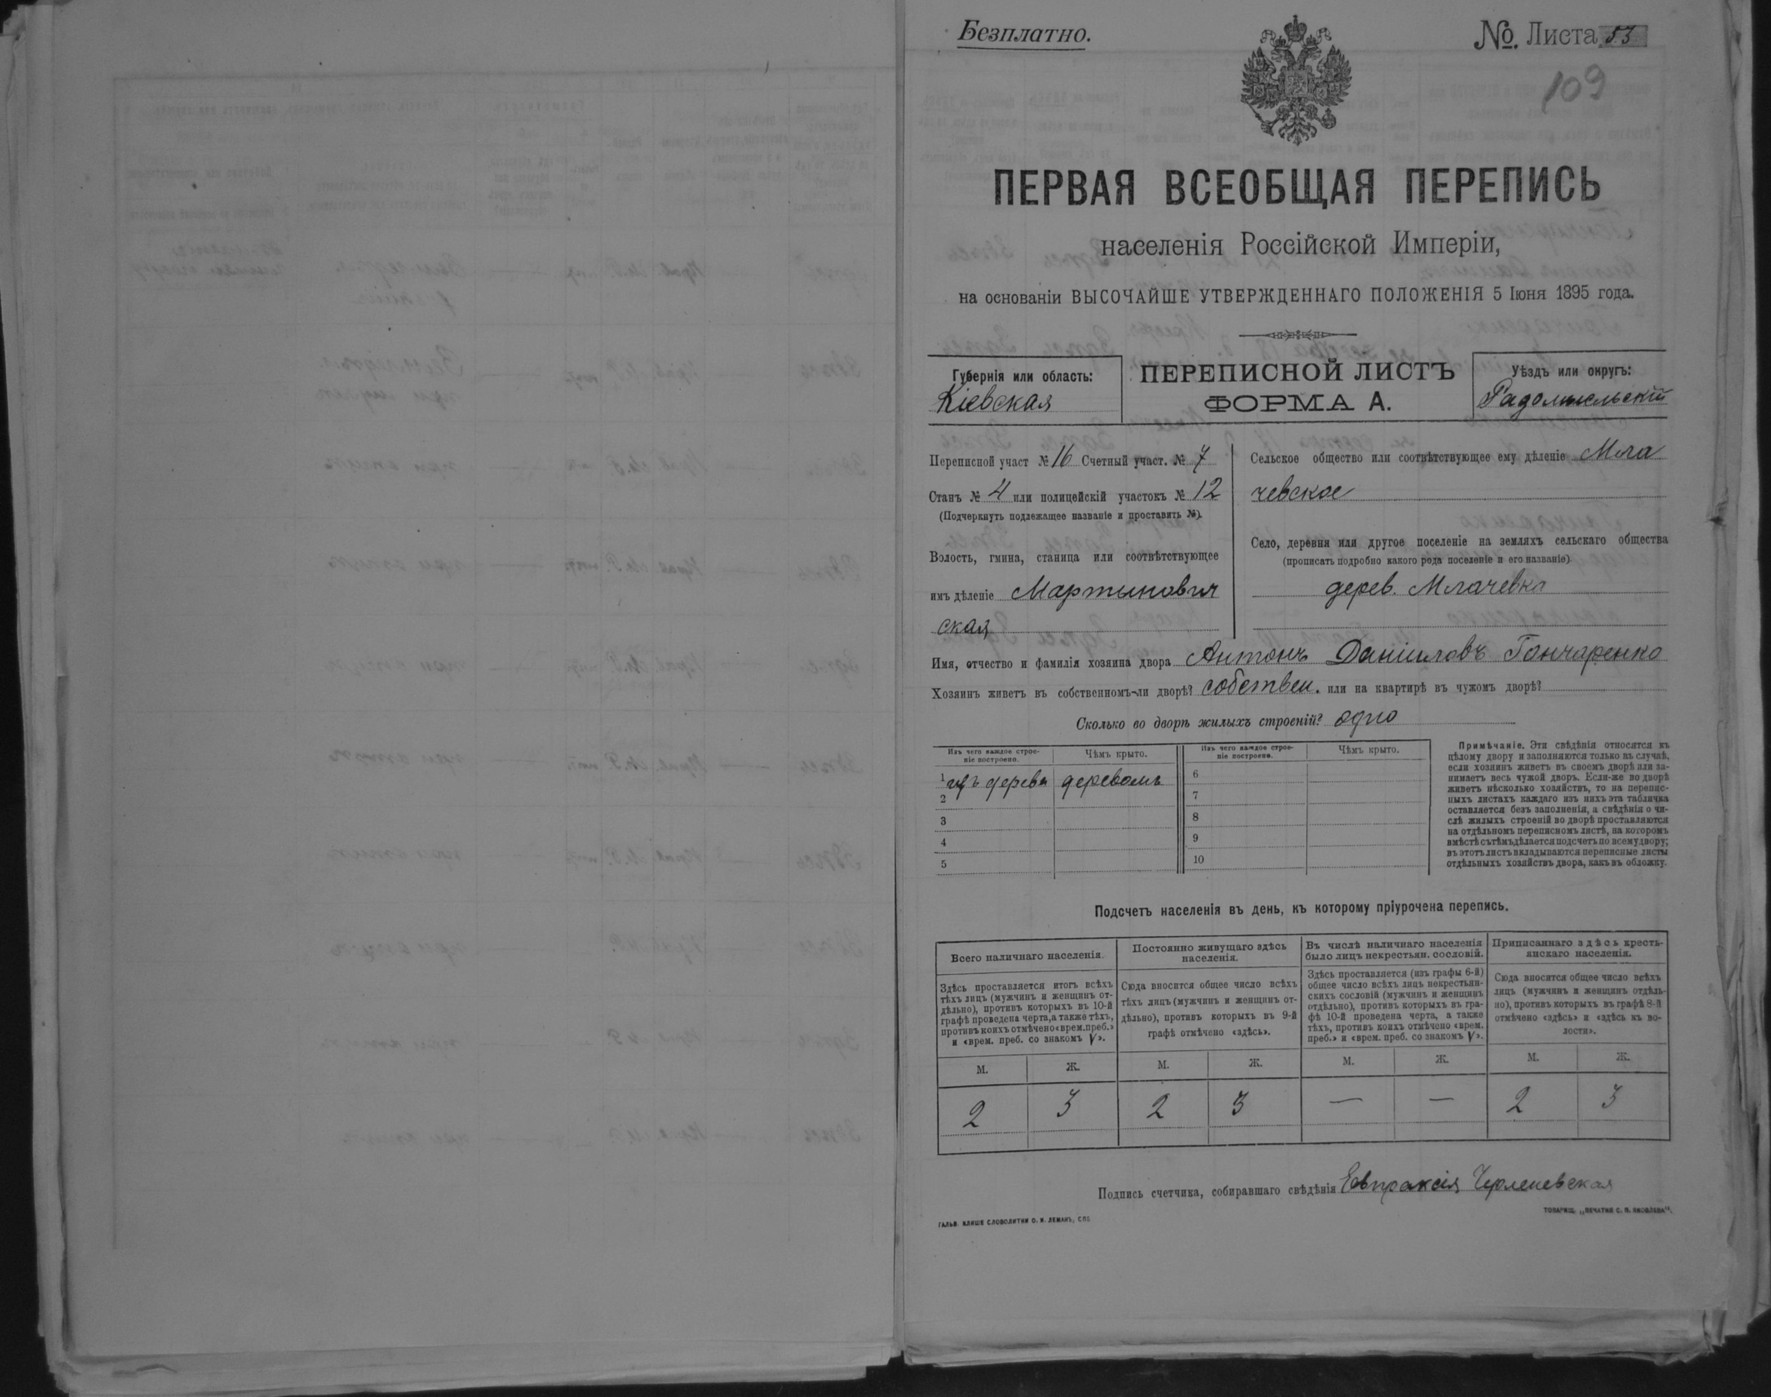 Безплатно.
№. Листа 53
109
ПЕРВАЯ ВСЕОБЩАЯ ПЕРЕПИСЬ
населенія Россійской Имперіи,
на основаніи ВЫСОЧАЙШЕ УТВЕРЖДЕННАГО ПОЛОЖЕНІЯ 5 Іюня 1895 года.
Губернія или область:
Кіевская
ПЕРЕПИСНОЙ ЛИСТЪ
ФОРМА А.
Уѣздъ или округъ:
Радомысльскій
Переписной участ № 16 Счетный участ. № 7
Станъ № 4 или полицейскій участокъ № 12
(Подчеркнуть подлежащее названіе и проставить №).
Волость, гмина, станица или соотвѣтствующее
имъ дѣленіе Мартынович
ская
Сельское общество или соотвѣтствующее ему дѣленіе Млча
чевское
Село, деревня или другое поселеніе на земляхъ сельскаго общества
(прописать подробно какого рода поселеніе и его названіе)
дерев. Млачевка
Имя, отчество и фамилія хозяина двора Антонъ Даніиловъ Гончаренко
Хозяинъ живетъ въ собственномъ-ли дворѣ? собствен. или на квартирѣ въ чужомъ дворѣ?
Сколько во дворѣ жилыхъ строеній? одно
Изъ чего каждое строе-
ніе построено.
Чѣмъ крыто.
Изъ чего каждое строе-
ніе построено.
Чѣмъ крыто.
1 изъ дерева деревомъ
2
3
4
5
6
7
8
9
10
Примѣчаніе. Эти свѣдѣнія относятся къ
цѣлому двору и заполняются только въ случаѣ,
если хозяинъ живетъ въ своемъ дворѣ или за-
нимаетъ весь чужой дворъ. Если-же во дворѣ
живетъ нѣсколько хозяйствъ, то на перепис-
ныхъ листахъ каждаго изъ нихъ эта табличка
оставляется безъ заполненія, а свѣдѣнія о чи-
слѣ жилыхъ строеній во дворѣ проставляются
на отдѣльномъ переписномъ листѣ, на которомъ
вмѣстѣ съ тѣмъ дѣлается подсчетъ по всему двору;
въ этотъ листъ вкладываются переписные листы
отдѣльныхъ хозяйствъ двора, какъ въ обложку.
Подсчетъ населенія въ день, къ которому пріурочена перепись.
Всего наличнаго населенія.
Здѣсь проставляется итогъ всѣхъ
тѣхъ лицъ (мужчинъ и женщинъ от-
дѣльно), противъ которыхъ въ 10-й
графѣ проведена черта, а также тѣхъ,
противъ коихъ отмѣчено «врем. преб.»
и «врем. преб. со знакомъ V».
Постоянно живущаго здѣсь
населенія.
Сюда вносится общее число всѣхъ
тѣхъ лицъ (мужчинъ и женщинъ от-
дѣльно), противъ которыхъ въ 9-й
графѣ отмѣчено «здѣсь».
Въ числѣ наличнаго населенія
было лицъ некрестьян. сословій.
Здѣсь проставляется (изъ графы 6-й)
общее число всѣхъ лицъ некрестьян-
скихъ сословій (мужчинъ и женщинъ
отдѣльно), противъ которыхъ въ гра-
фѣ 10-й проведена черта, а также
тѣхъ, противъ коихъ отмѣчено «врем.
преб.» и «врем. преб. со знакомъ V».
Приписаннаго здѣсь кресть-
янскаго населенія.
Сюда вносится общее число всѣхъ
лицъ (мужчинъ и женщинъ отдѣль-
но), противъ которыхъ въ графѣ 8-й
отмѣчено «здѣсь» и «здѣсь къ во-
лости».
М. Ж. М. Ж. М. Ж. М. Ж.
2 3 2 3 — — 2 3
Подпись счетчика, собиравшаго свѣдѣнія Евпраксія
ГАЛЬВ. КЛИШЕ СЛОВОЛИТНИ О. И. ЛЕМАНЪ, СПБ.
ТОВАРИЩ. „ПЕЧАТНЯ С. П. ЯКОВЛЕВА".